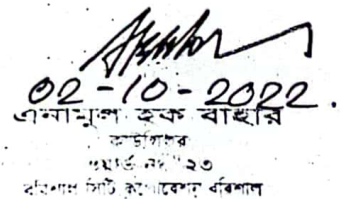 02-10-2022.
এনামুল হক বাহার
কাউন্সিলর
ওয়ার্ড নং ২৩
বরিশাল সিটি কর্পোরেশন বরিশাল